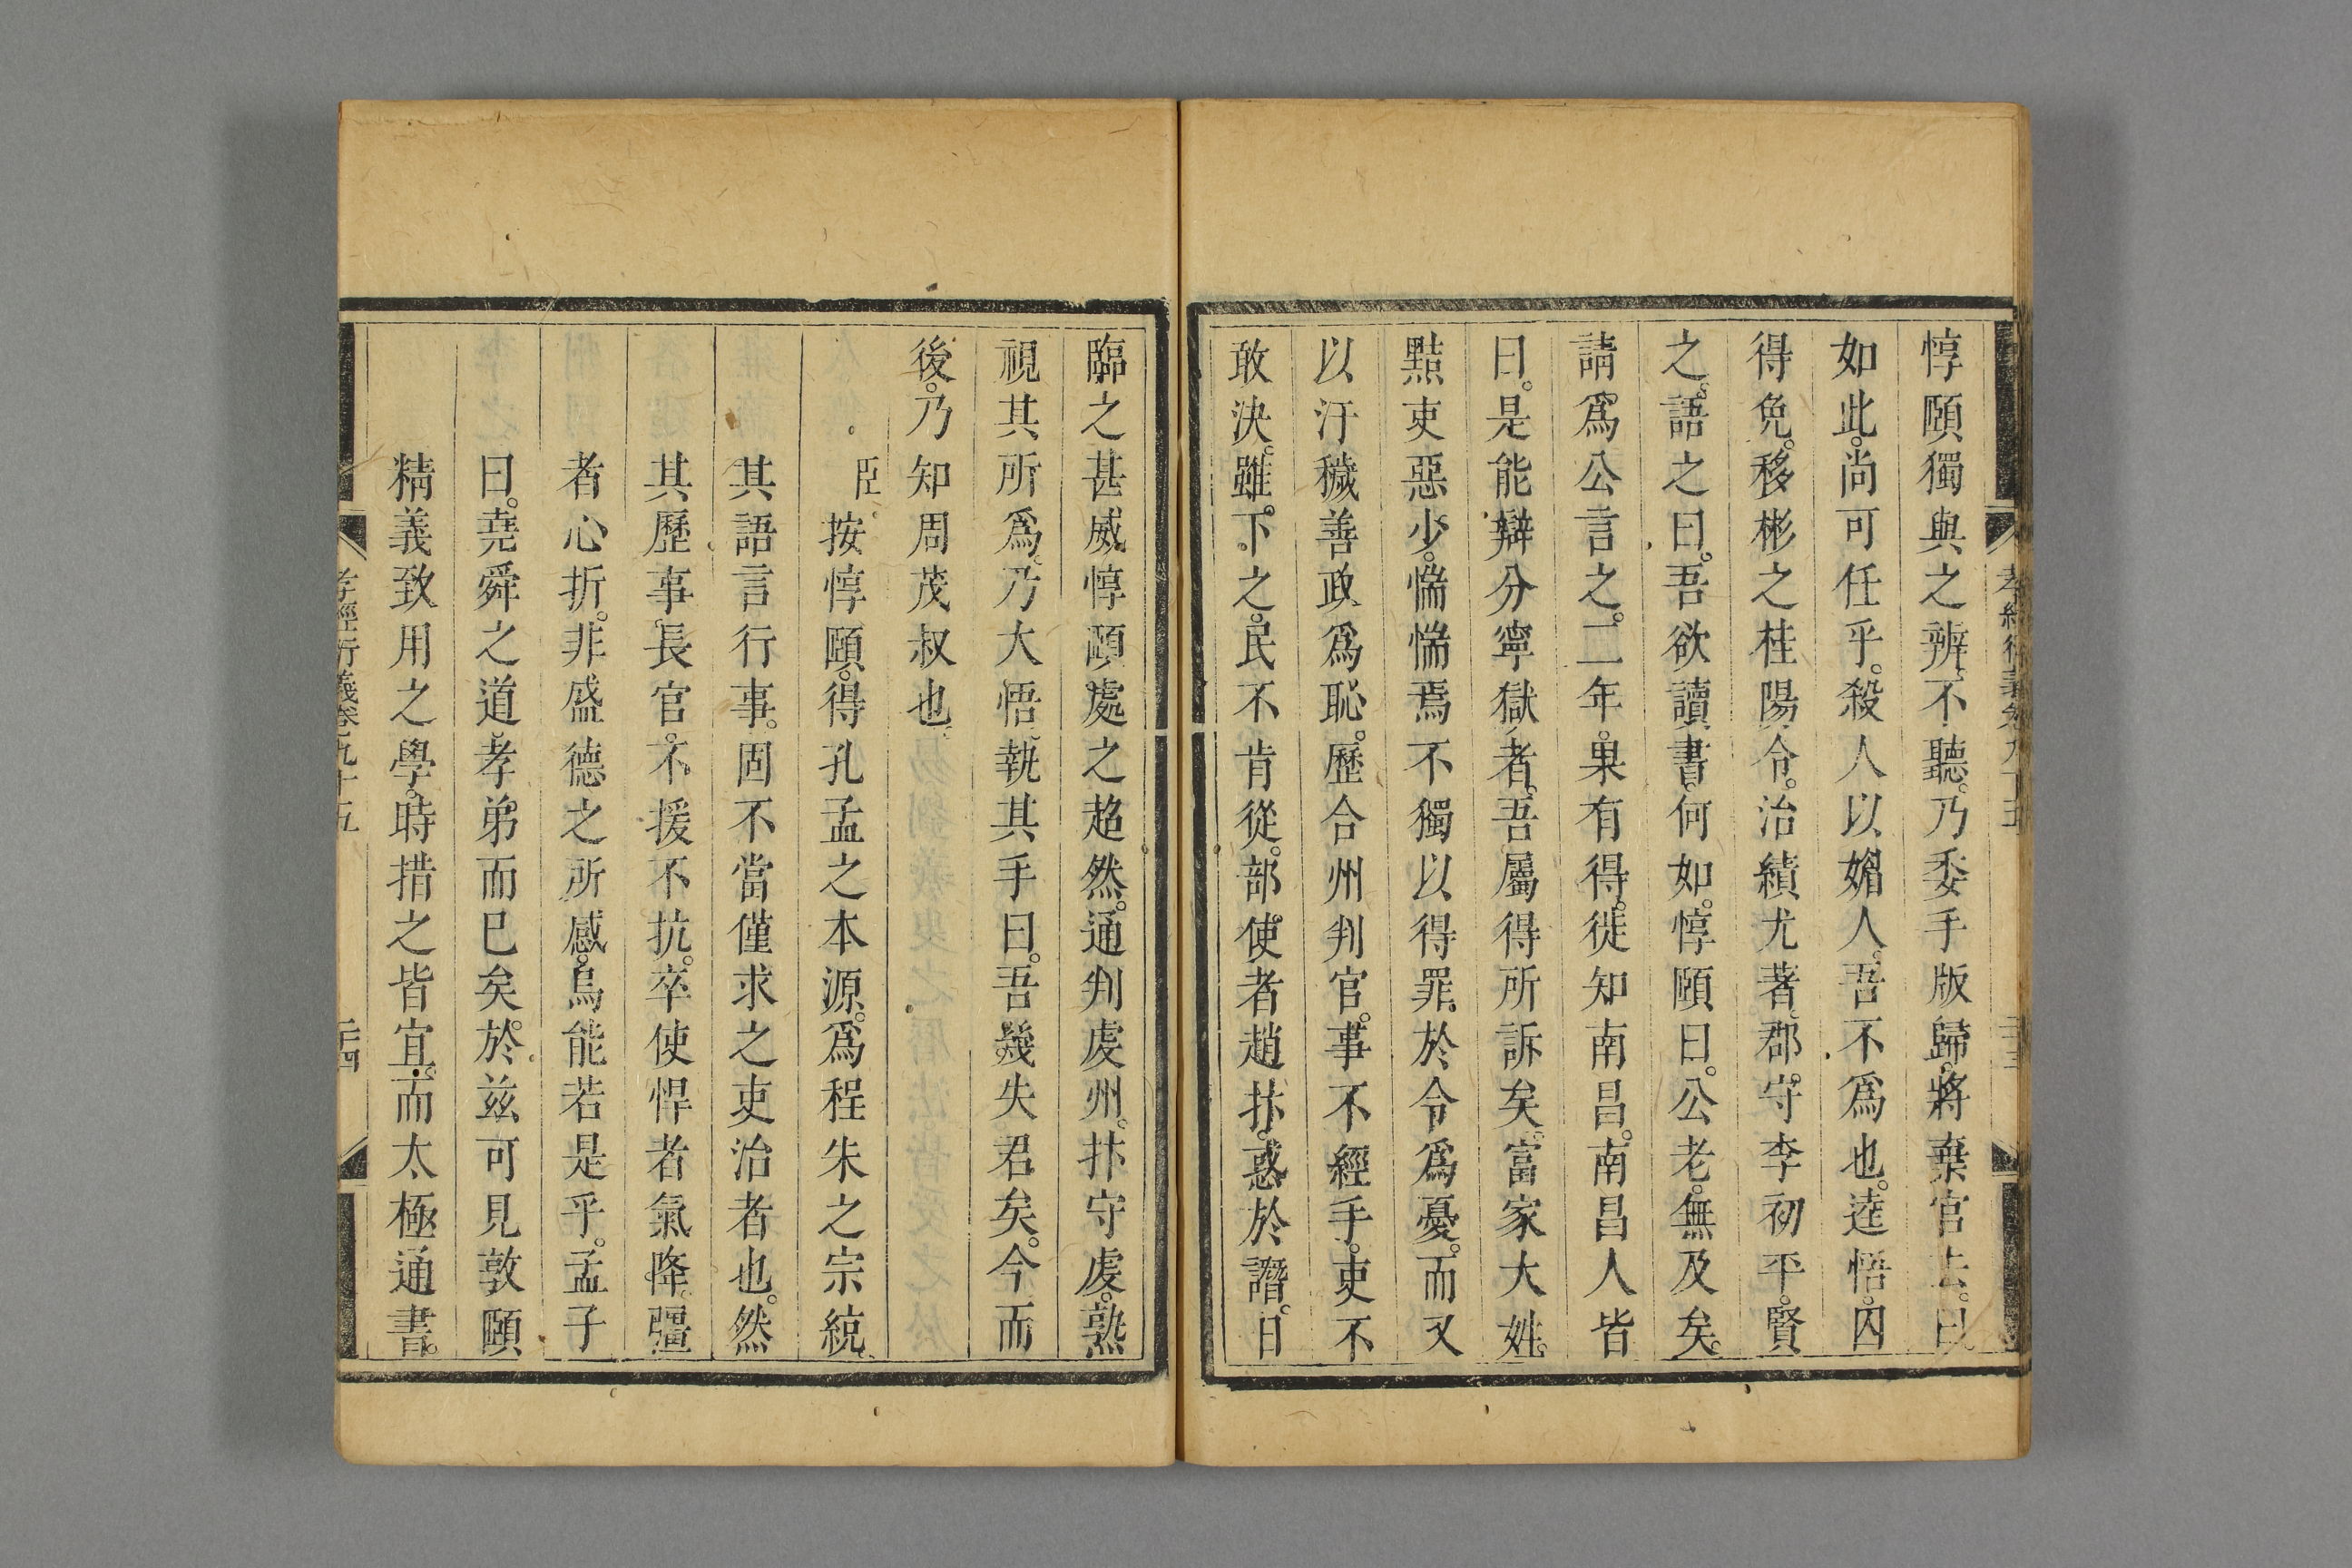 惇頤獨與之辨。不聽。乃委手版歸。將棄官去。曰。
如此。尚可任乎。殺人以媚人。吾不爲也。逵悟。囚
得免。移彬之桂陽令。治績尤著。郡守李初平。賢
之。語之曰。吾欲讀書。何如。惇頤曰。公老。無及矣。
請爲公言之。二年。果有得。徙知南昌。南昌人皆
曰。是能辯分寧獄者。吾屬得所訴矣。富家大姓。
黠吏惡少。惴惴焉不獨以得罪於令爲憂。而又
以汙穢善政爲恥。歷合州判官。事不經手。吏不
敢決。雖下之。民不肯從。部使者趙抃。惑於譖。日
臨之甚威惇頤處之超然。通判虔州。抃守虔。熟
視其所爲。乃大悟。執其手曰。吾幾失君矣。今而
後。乃知周茂叔也。
臣按惇頤。得孔孟之本源。爲程朱之宗統。
其語言行事。固不當僅求之吏治者也。然
其歷事長官。不援不抗。卒使悍者氣降。彊
者心折。非盛德之所感。烏能若是乎。孟子
曰。堯舜之道。孝弟而已矣。於茲可見敦頤
精義致用之學。時措之皆宜。而太極通書。
孝經衍義卷九十五
二十四